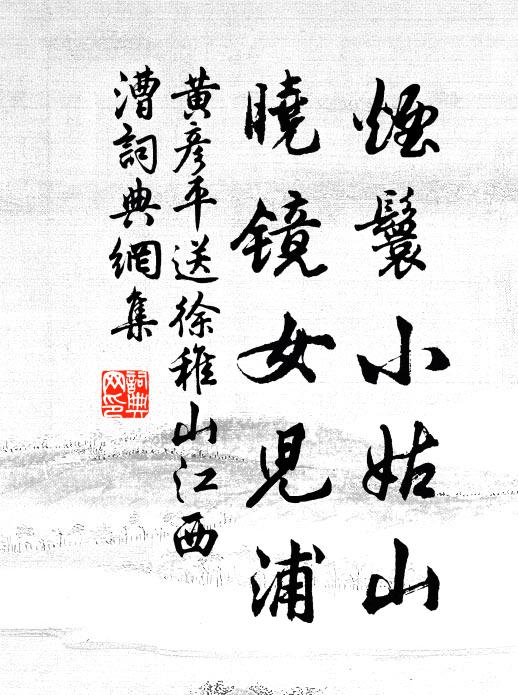 煙鬟小姑山
曉鏡女兒浦
黃彥平送徐稚山江西
漕詞典網集
詞典
网印